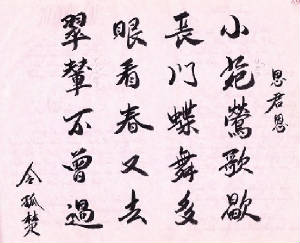 思君恩
小苑鶯歌歇
長門蝶舞多
眼看春又去
翠輦不曾過
令狐楚